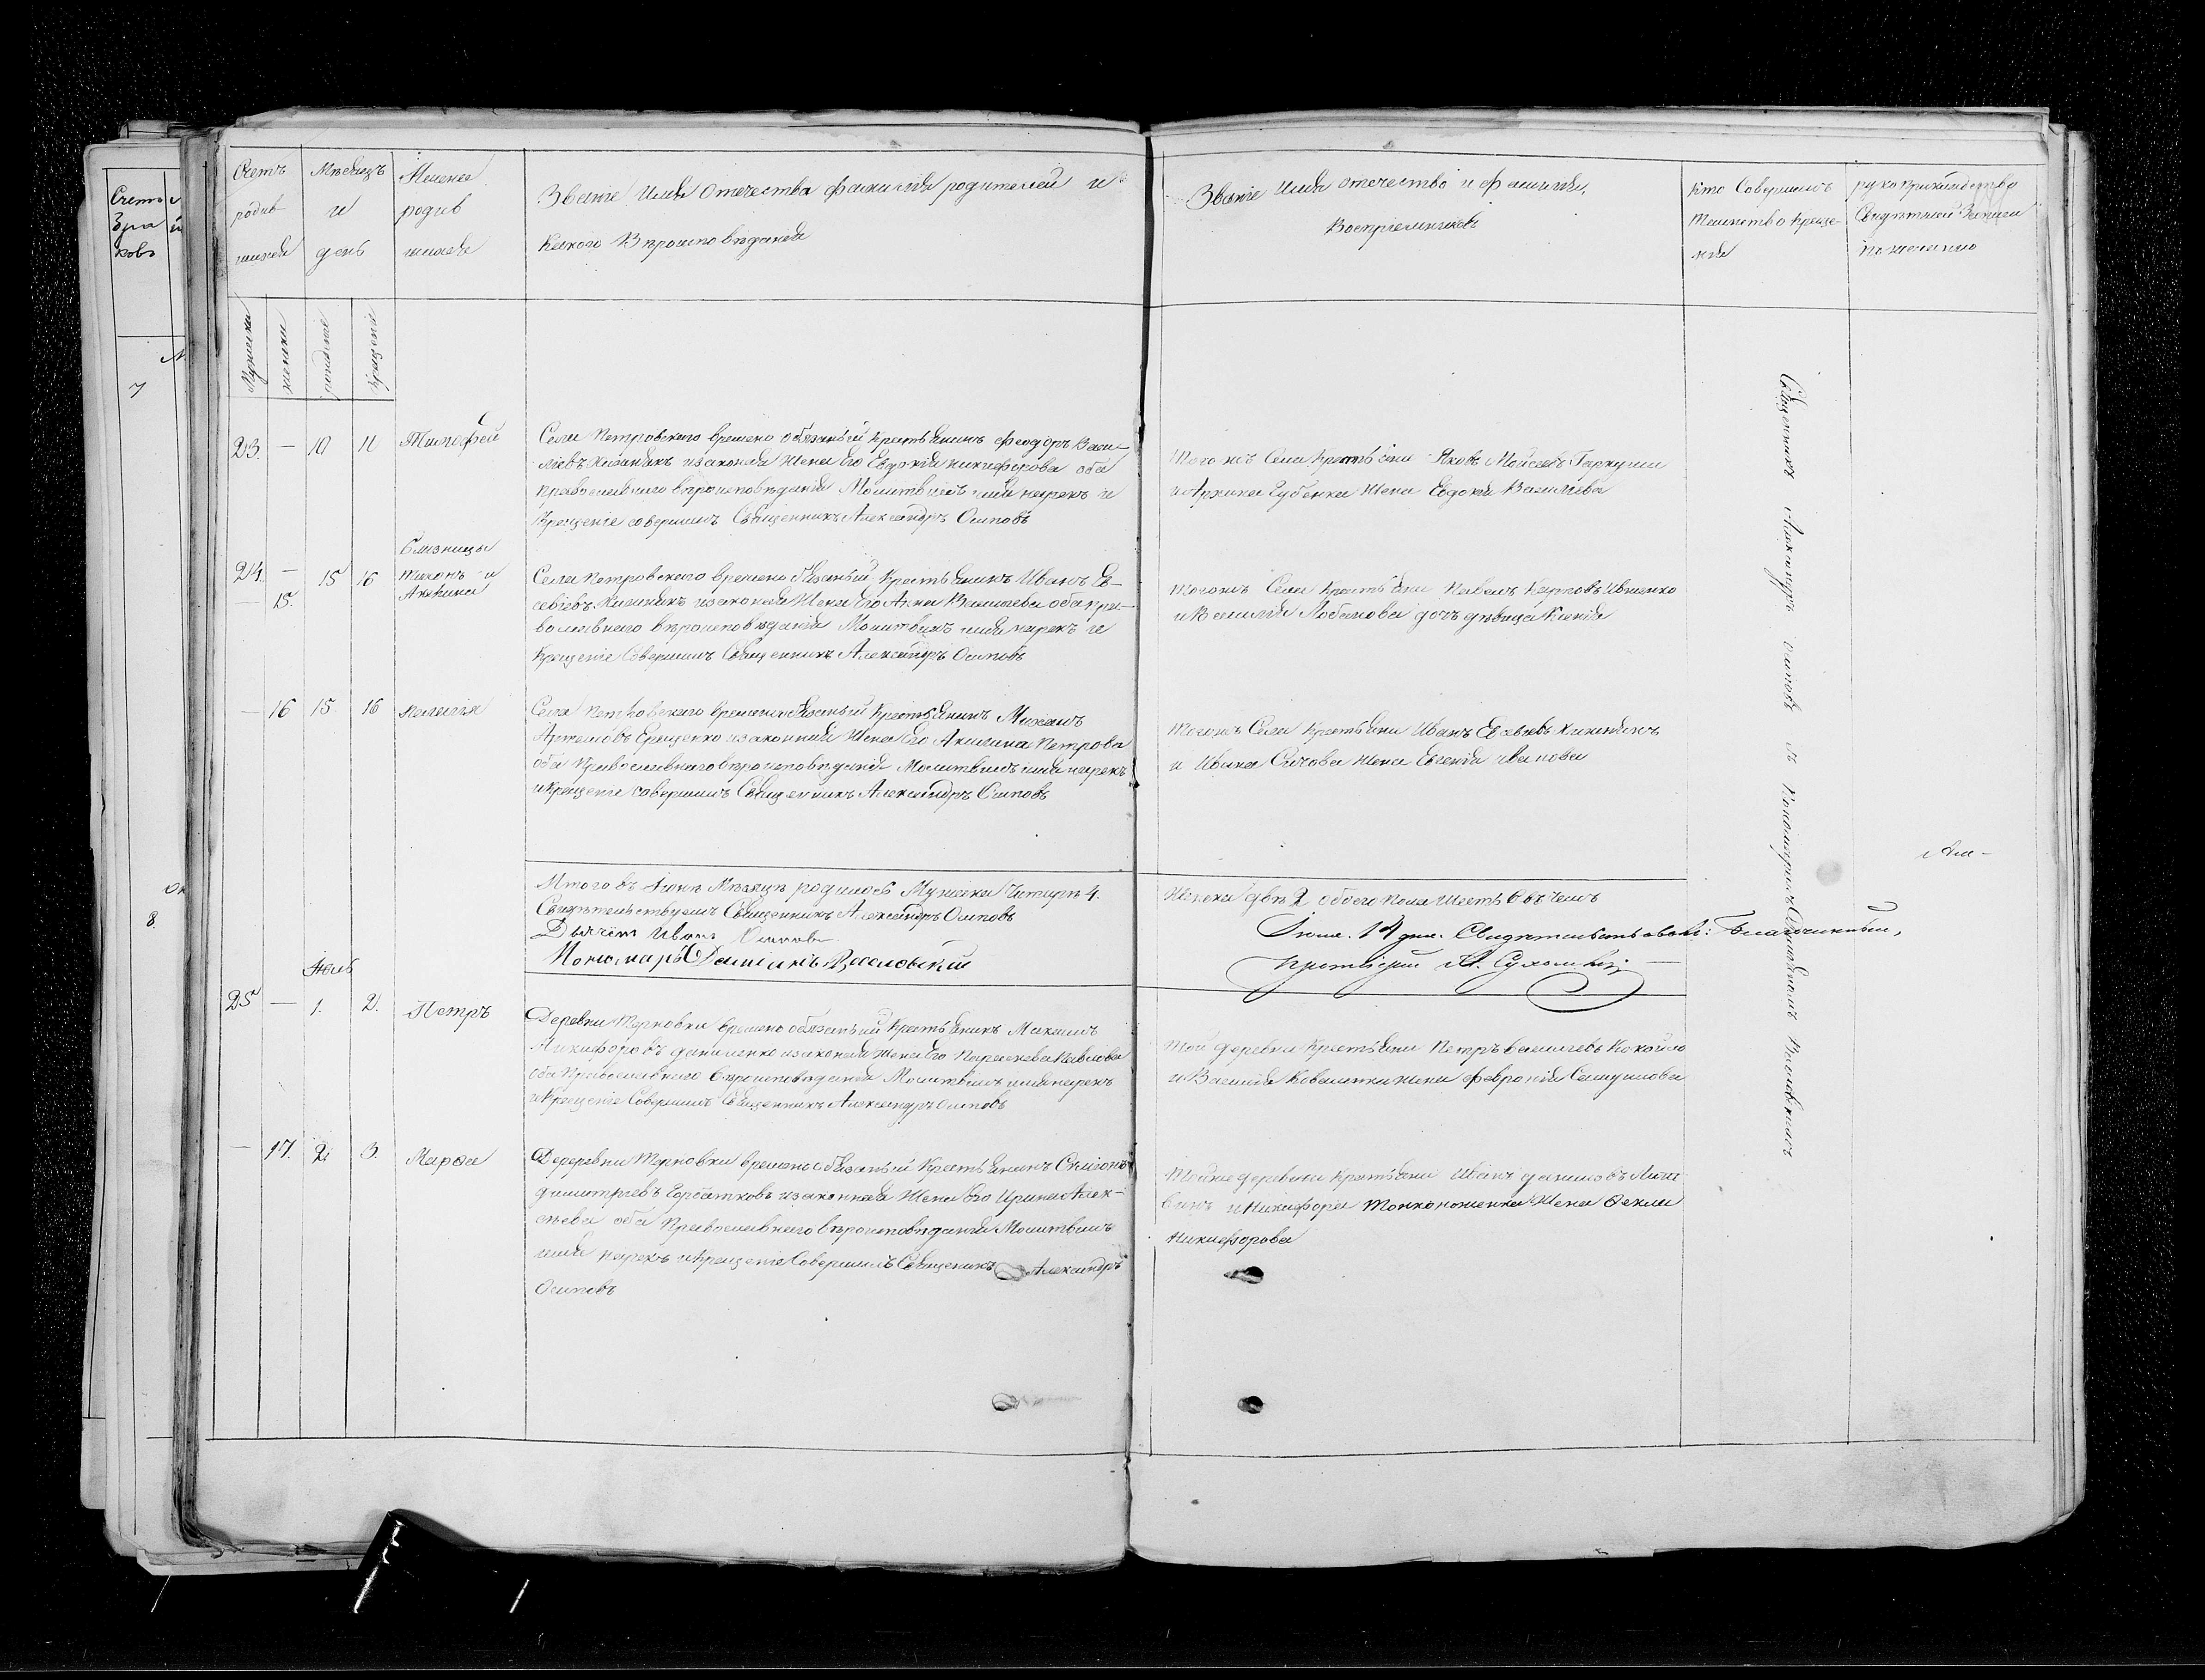 Счетъ родив шихся
Мѣсяцъ и день
Имена родив шихся
Званіе Имя Отечества фамилія родителей и
Какого Вѣроисповѣданія
Званіе Имя отечество и фамилія,
Воспріемниковъ
Кто Совершалъ
Таинство Креще-
нія
рукоприкладство
Свидѣтелей Записи
по желанію
Мужска
женска
рожденія
крещенія
Счетъ
7
8.
23. — 10 11 Тимофей
Села Петровского временно обязаный Крестьянинъ Феодоръ Васи-
ліевъ и законная Жена Его Евдокія Никифорова оба
Православнаго вѣроисповѣданія Молитвилъ имя нарекъ и
Крещеніе совершилъ Священникъ Александръ Осиповъ
Того жъ Села Крестьяни Яковъ Мойсеевъ Гаркуша
и Архипа Губенка Жена Евдокія Васильева
24. — 15 16 близницы
15. Тихонъ и
Акилина
Села Петровского временно обязаный Крестьянинъ Иванъ Ев-
севіевъ и законная Жена Его Анна Васильева оба пра-
вославнаго вѣроисповѣданія Молитвилъ имя нарекъ и
Крещеніе Совершилъ Священникъ Александръ Осиповъ
Того жъ Села Крестьяни Павелъ Карповъ Ивченко
и Василія Лобанова дочъ дѣвица Ксенія
— 16 15 16 Пелагія
Села Петровского временно обязаный Крестьянинъ Михаилъ
Артемовъ Ерещенко и законная Жена Его Акилина Петрова
оба Православнаго вѣроисповѣданія Молитвилъ имя нарекъ
и Крещеніе совершилъ Священникъ Александръ Осиповъ
Того жъ Села Крестьяни Иванъ
и Ивана Сичова Жена Евгенія Иванова
Итого въ Іюнѣ Мѣсяцѣ родилось Мужска Четыри 4.
Женска двѣ 2 обоего пола шесть 6 въ чемъ
Свидѣтельствуемъ Священникъ Александръ Осиповъ
Дьячекъ Иванъ Осиповъ
Пономарь Даміанъ
Іюля. 14 дня. Свидѣтельствовалъ: Благочинный,
Протоіерей
Іюль
25 — 1. 2. Петръ
Деревни Терновки временно обязаный Крестьянинъ Михаилъ
Никифоровъ даниленко и законная жена Его Параскева Павлова
оба Православнаго вѣроисповѣданія Молитвилъ имя нарекъ
и Крещеніе Совершилъ Священникъ Александръ Осиповъ
Той деревни Крестьяни Петръ Васильевъ
и Василія жена Февронія Самуилова
— 17. 2. 3. Марѳа
Дереревни Терновки временно обязаный Крестьянинъ
димитріевъ Горбатковъ и законная Жена Его Ирина Алек-
сѣева оба Православнаго вѣроисповѣданія Молитвилъ
имя нарекъ и Крещеніе Совершилъ Священикъ Александръ
Осиповъ
Той же деревни Крестьяни Иванъ даниловъ Лит
винъ и Никифора Тонконоженка Жена Ѳекла
Никифорова
Священникъ Александръ Осиповъ съ Пономаремъ